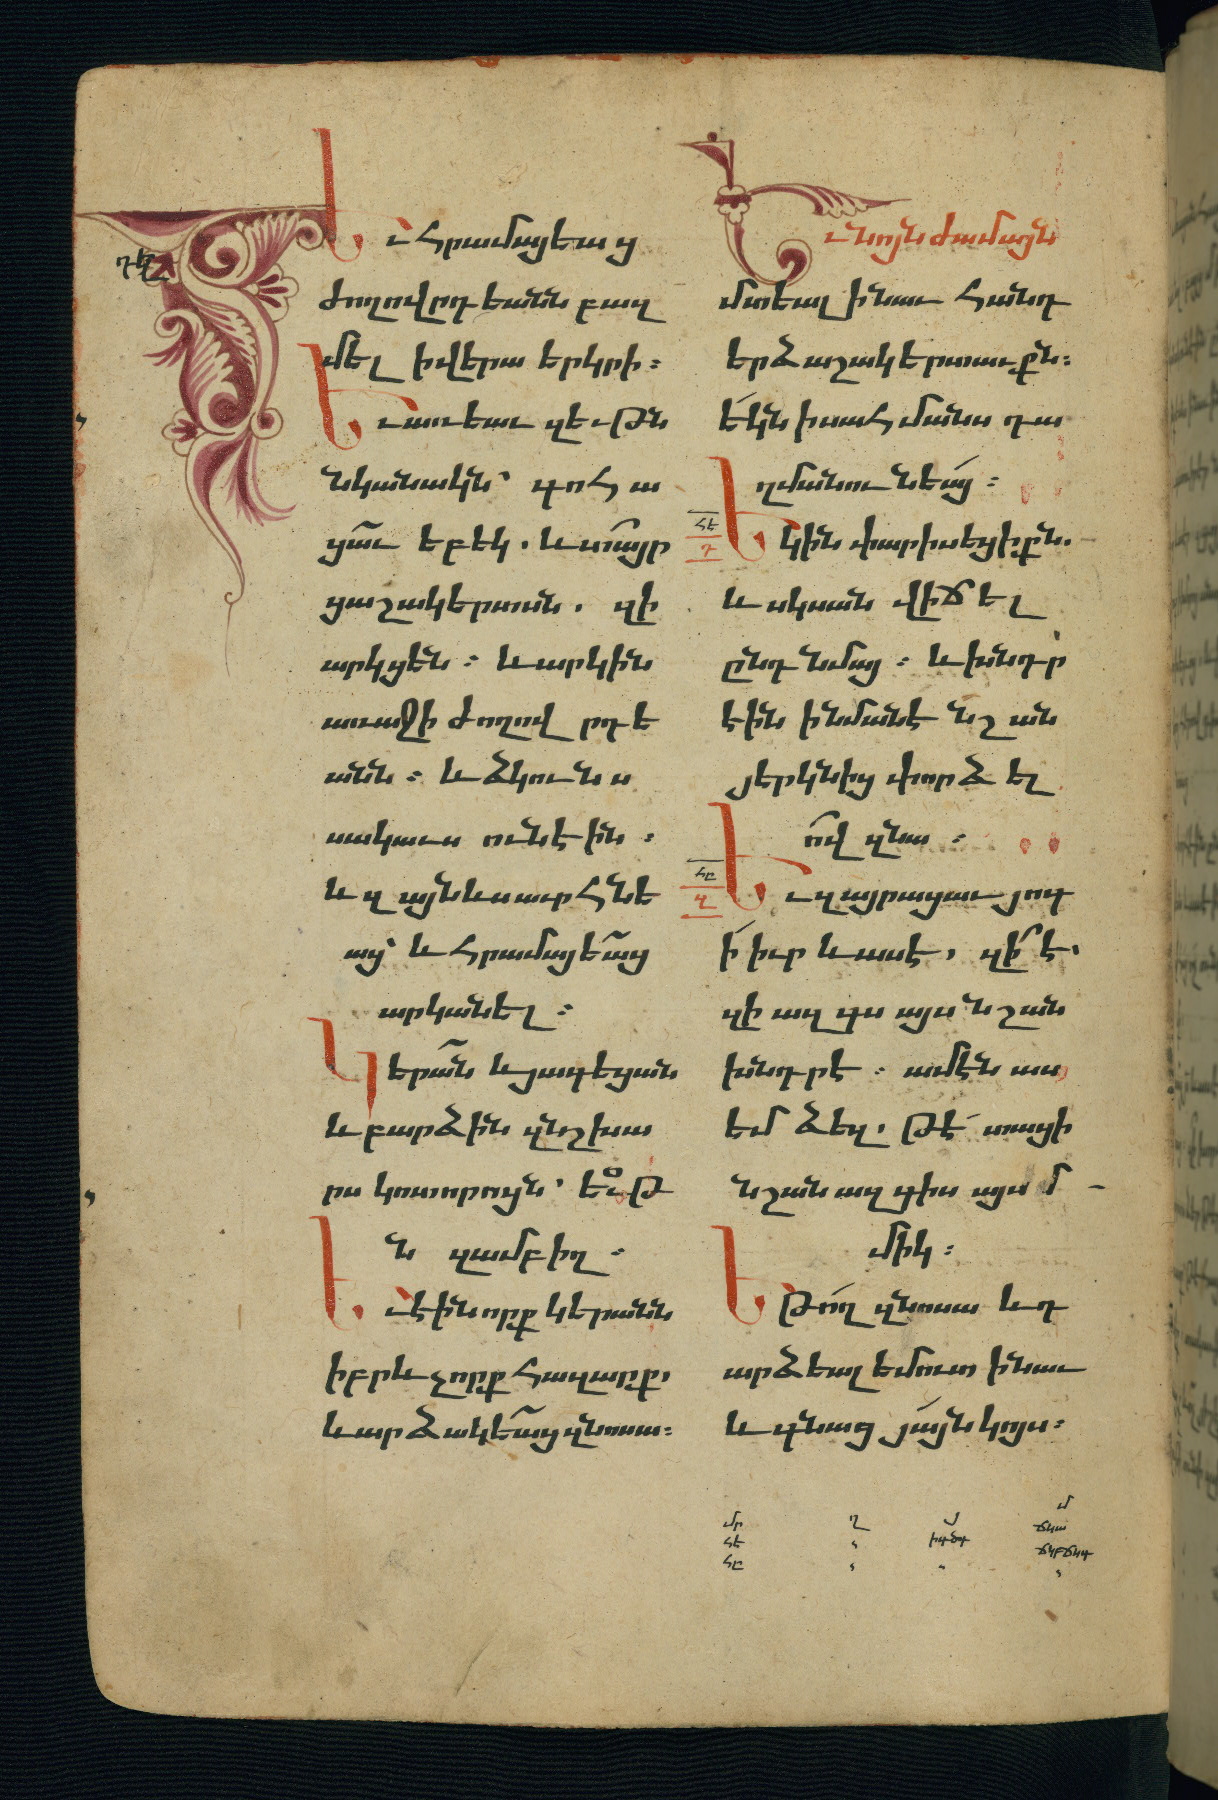 Եւ հրամայեաց
ժողովրդեանն բազ
մել ի վերա երկրի։
Եւ առեալ զեւթն
նկանակն՝ գոհա
ցաւ եբեկ. և տայր
ցաշակերտսն. զի
արկցեն։ և արկին
առաջի ժողովրդե
անն։ և ձկունս
սակաւս ունէին։
և զայն ևս աւրհնե
աց՝ և հրամայեաց
արկանել։
Կերան և յագեցան
և բարձին զնշխա
րս կոտորոյն՝ եւթ
ն զամբիղ։
Եւ էին որք կերանն
իբրև չորք հազարք,
և արձակեաց զնոսա։
Եւ նոյն ժամայն
մտեալ ի նաւ հանդ
երձ աշակերտաւքն։
եկն ի սահմանս դա
ղմանունեայ։
հե
դ
Եկին փարիսեցիքն.
և սկսան վիճել
ընդ նմայ։ և խնդր
էին ի նմանէ նշան
յերկնից փորձել
ով զնա։
հը
զ
Եւ զայրացաւ յոգ
ի իւր և ասէ, զի՞ է,
զի ազգս այս նշան
խնդրէ։ ամէն աս
եմ ձեզ. թէ տացի
նշան ազգիս այս մ
միկ։
Եթող զնոսա և դ
արձեալ եմուտ ի նաւ
և գնաց յայն կոյս։